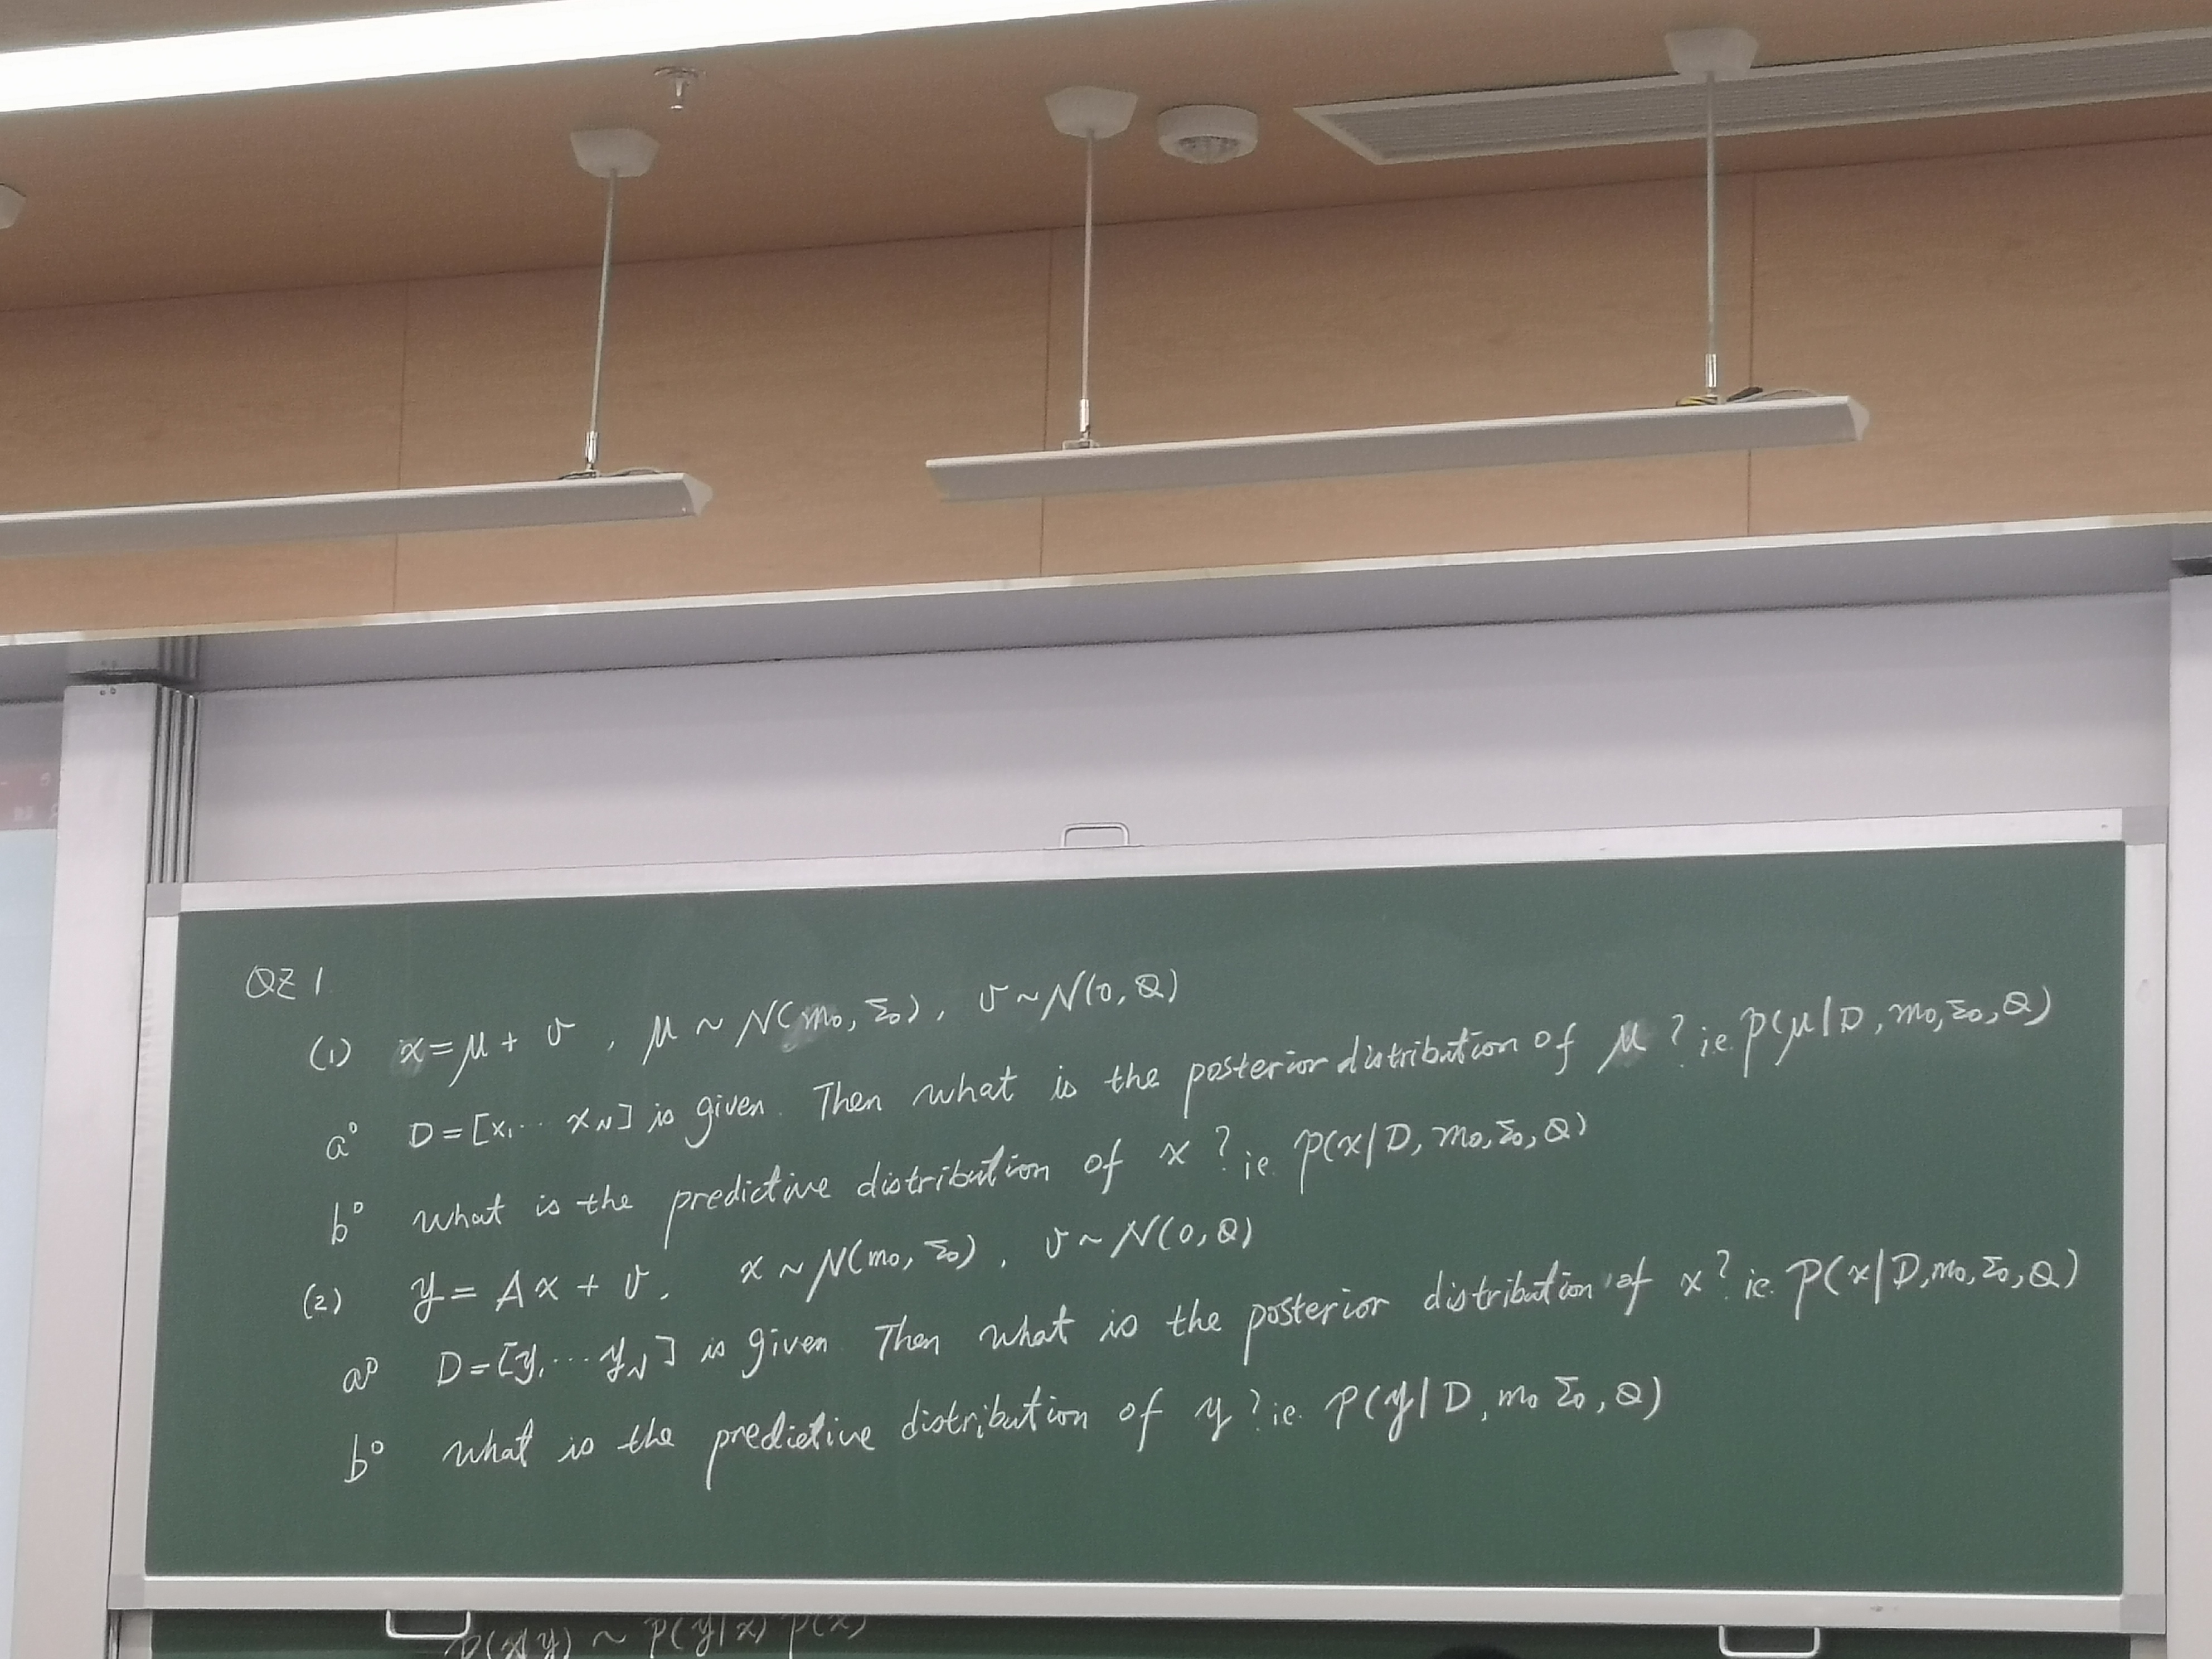 QZ 1
(1) x = μ + v , μ ~ N(m₀, Σ₀) , v ~ N(0, Q)
a° D = [x₁ ... x_N] is given. Then what is the posterior distribution of μ ? i.e. p(μ | D, m₀, Σ₀, Q)
b° what is the predictive distribution of x ? i.e. p(x | D, m₀, Σ₀, Q)
(2) y = Ax + v , x ~ N(m₀, Σ₀) , v ~ N(0, Q)
a° D = [y₁ ... y_N] is given Then what is the posterior distribution of x ? i.e. p(x | D, m₀, Σ₀, Q)
b° what is the predictive distribution of y ? i.e. p(y | D, m₀ Σ₀, Q)
p(x|y) ~ p(y|x) p(x)